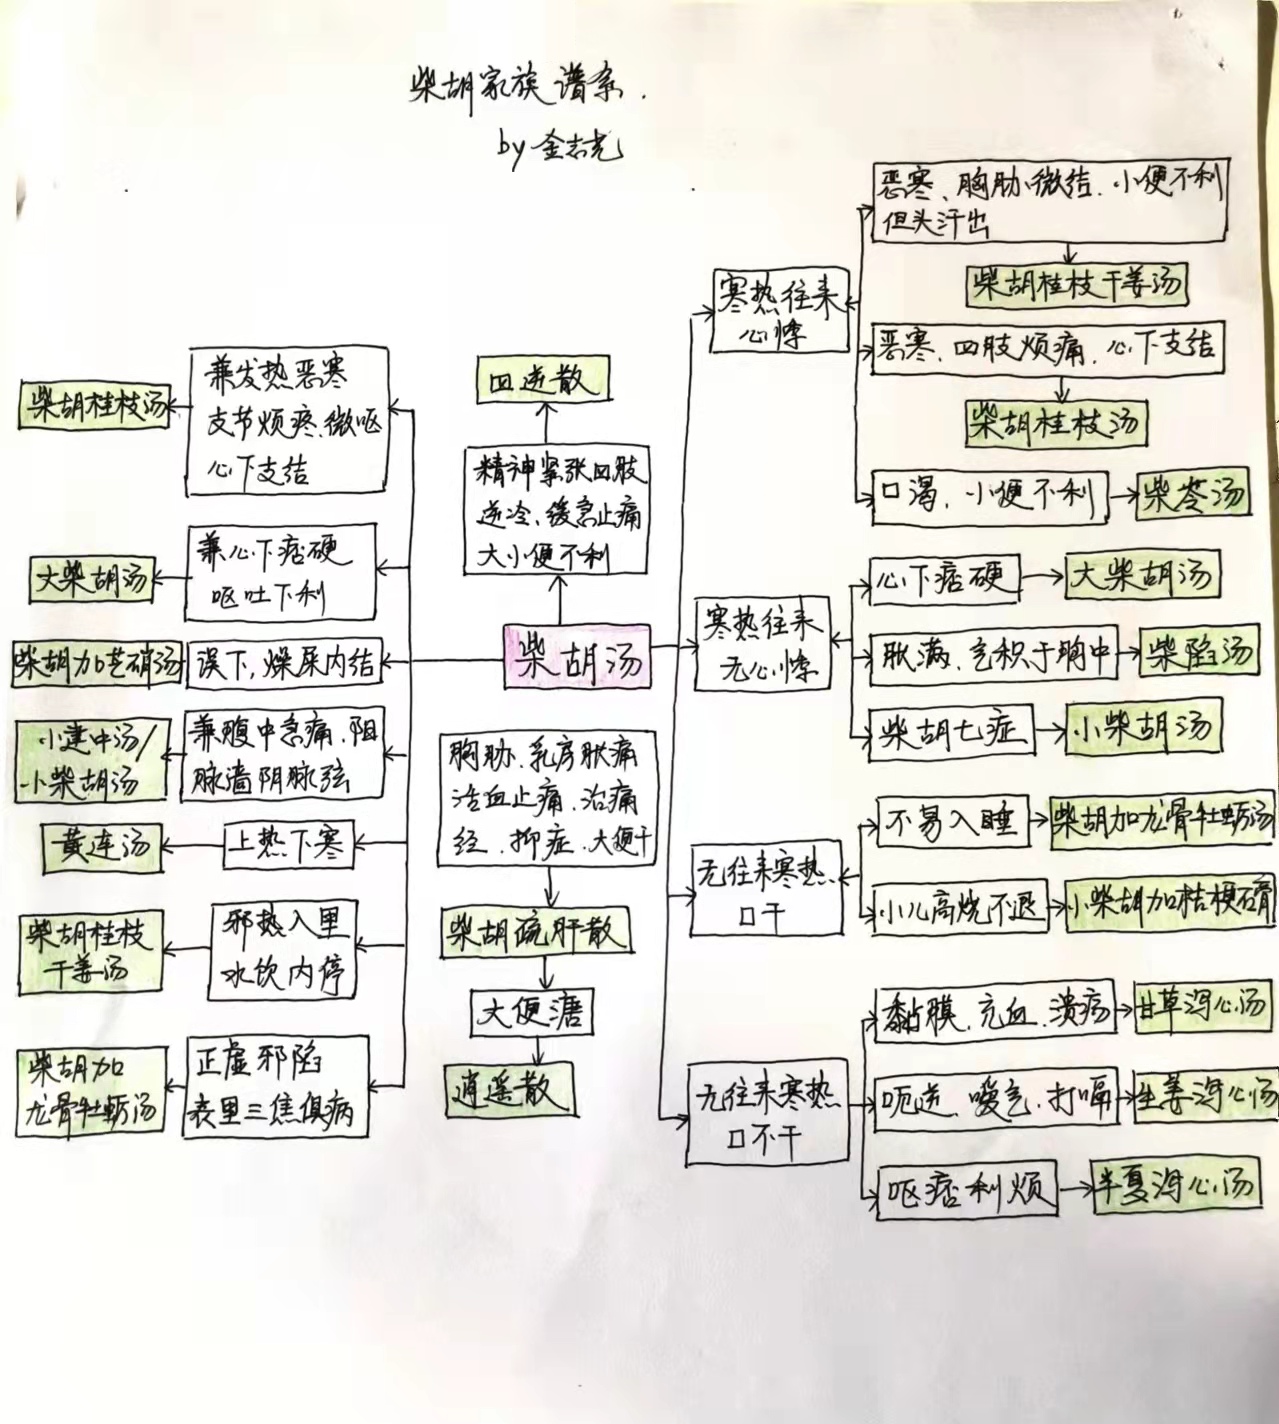 柴胡家族谱系.
by 金志光
柴胡桂枝汤
兼发热恶寒
支节烦疼、微呕
心下支结
大柴胡汤
兼心下痞硬
呕吐下利
柴胡加芒硝汤
误下,燥屎内结
小建中汤/
小柴胡汤
兼腹中急痛、阳
脉濇阴脉弦
黄连汤
上热下寒
柴胡桂枝
干姜汤
邪热入里
水饮内停
柴胡加
龙骨牡蛎汤
正虚邪陷
表里三焦俱病
四逆散
精神紧张四肢
逆冷、缓急止痛
大小便不利
柴胡汤
胸胁、乳房胀痛
活血止痛、治痛
经、抑症、大便干
柴胡疏肝散
大便溏
逍遥散
寒热往来
心悸
恶寒、胸胁微结、小便不利
但头汗出
柴胡桂枝干姜汤
恶寒、四肢烦痛、心下支结
柴胡桂枝汤
口渴、小便不利
柴苓汤
寒热往来
无心悸
心下痞硬
大柴胡汤
胀满、气积于胸中
柴陷汤
柴胡七症
小柴胡汤
无往来寒热
口干
不易入睡
柴胡加龙骨牡蛎汤
小儿高烧不退
小柴胡加桔梗石膏
无往来寒热
口不干
黏膜、充血、溃疡
甘草泻心汤
呃逆、嗳气、打嗝
生姜泻心汤
呕痞利烦
半夏泻心汤